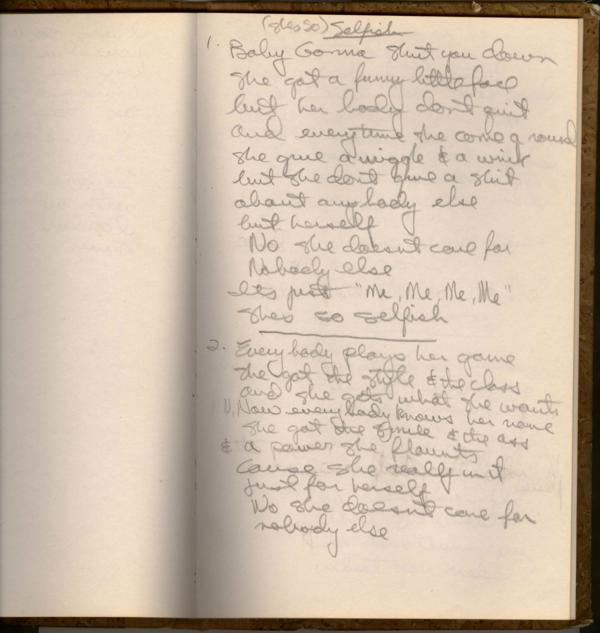 (shes so) Selfish
1. Baby Gonna Shut you down
She got a funny little face
but her body don't quit
and everytime she come a round
she give a wiggle & a wink
but she don't give a shit
about anybody else
but herself
No she doesn't care for
Nobody else
Its just "Me, Me, Me, Me"
Shes so selfish
2. Everybody plays her game
She got the style & the class
and she gets what she wants
Now everybody knows her name
She got the smile & the ass
& a power she flaunts
Cause she really in it
just for herself
No she doesn't care for
nobody else